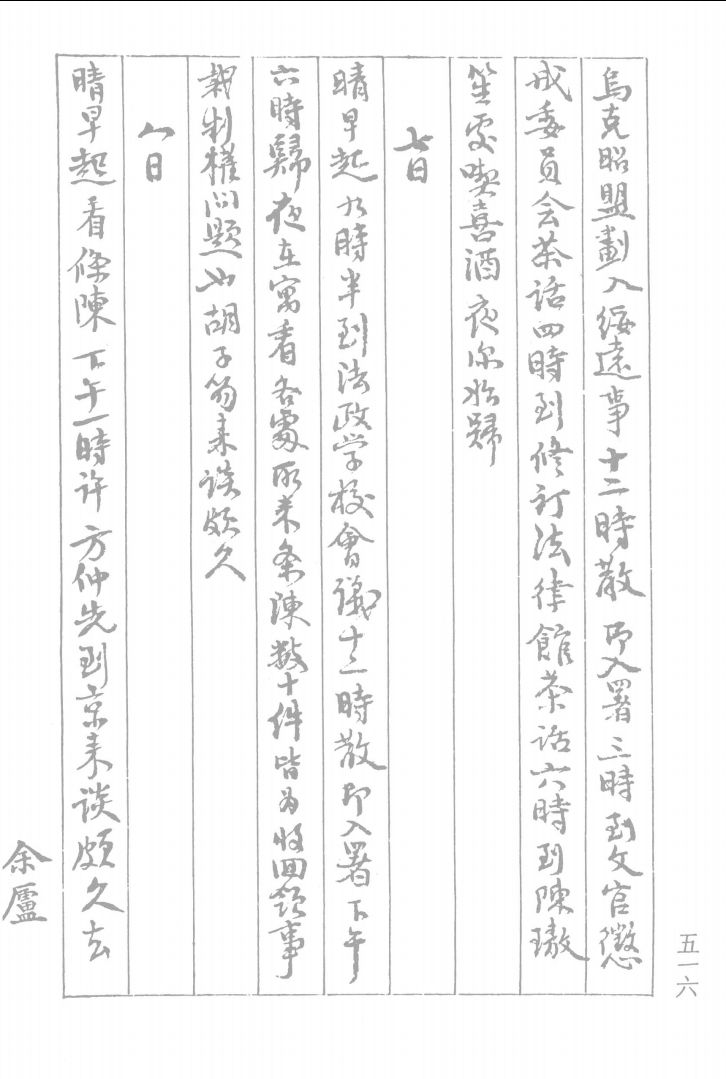 烏克昭盟劃入綏遠事十二時散即入署三時到文官懲
戒委員会茶话四時到修订法律館茶话六時到陳璈
笙處喫喜酒夜深始歸
七日
晴早起九時半到法政学校會議十二時散即入署下午
六時歸夜在寓看各處所来条陳数十件皆为收回領事
裁制權问题也胡子笏来谈颇久
八日
晴早起看條陳下午一時许方仲先到京来谈颇久去
余廬
五一六